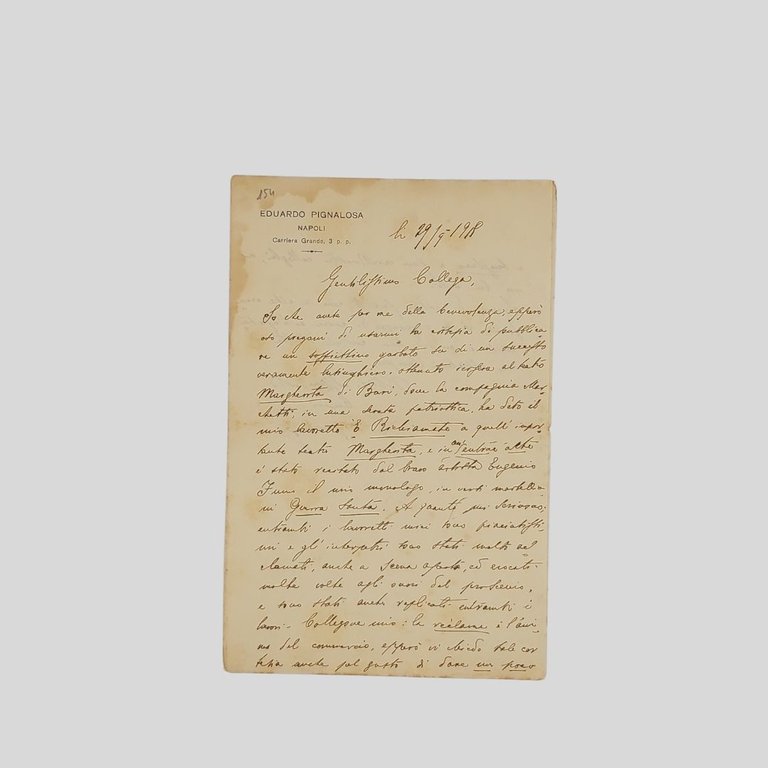 254
EDUARDO PIGNALOSA
NAPOLI
Carriera Grande, 3 p. p.
li 29/9-1918
Gentilissimo Collega,
So che avete per me della benevolenza, epperò
oso pregarvi di usarmi la cortesia di pubblica
re un soffiettino garbato su di un successo
veramente lusinghiero, ottenuto iersera al teatro
Margherita di Bari, dove la compagnia Mar-
chetti, in una serata patriottica, ha dato il
mio lavoretto È Richiamate a quell' impor
tante teatro Margherita, e in
è stato recitato dal bravo artista Eugenio
il mio monologo, in versi martellia-
ni Guerra Santa. A quanto mi scrivono,
entrambi i lavoretti miei sono piaciutissi
mi e gl' interpetri sono stati molto ac
clamati, anche a scena aperta, ed evocati
molte volte agli onori del proscenio,
e sono stati anche replicati entrambi i
lavori. Collegone mio: la reclame è l'ani-
ma del commercio, epperò vi chiedo tale cor
tesia anche pel gusto di dare un